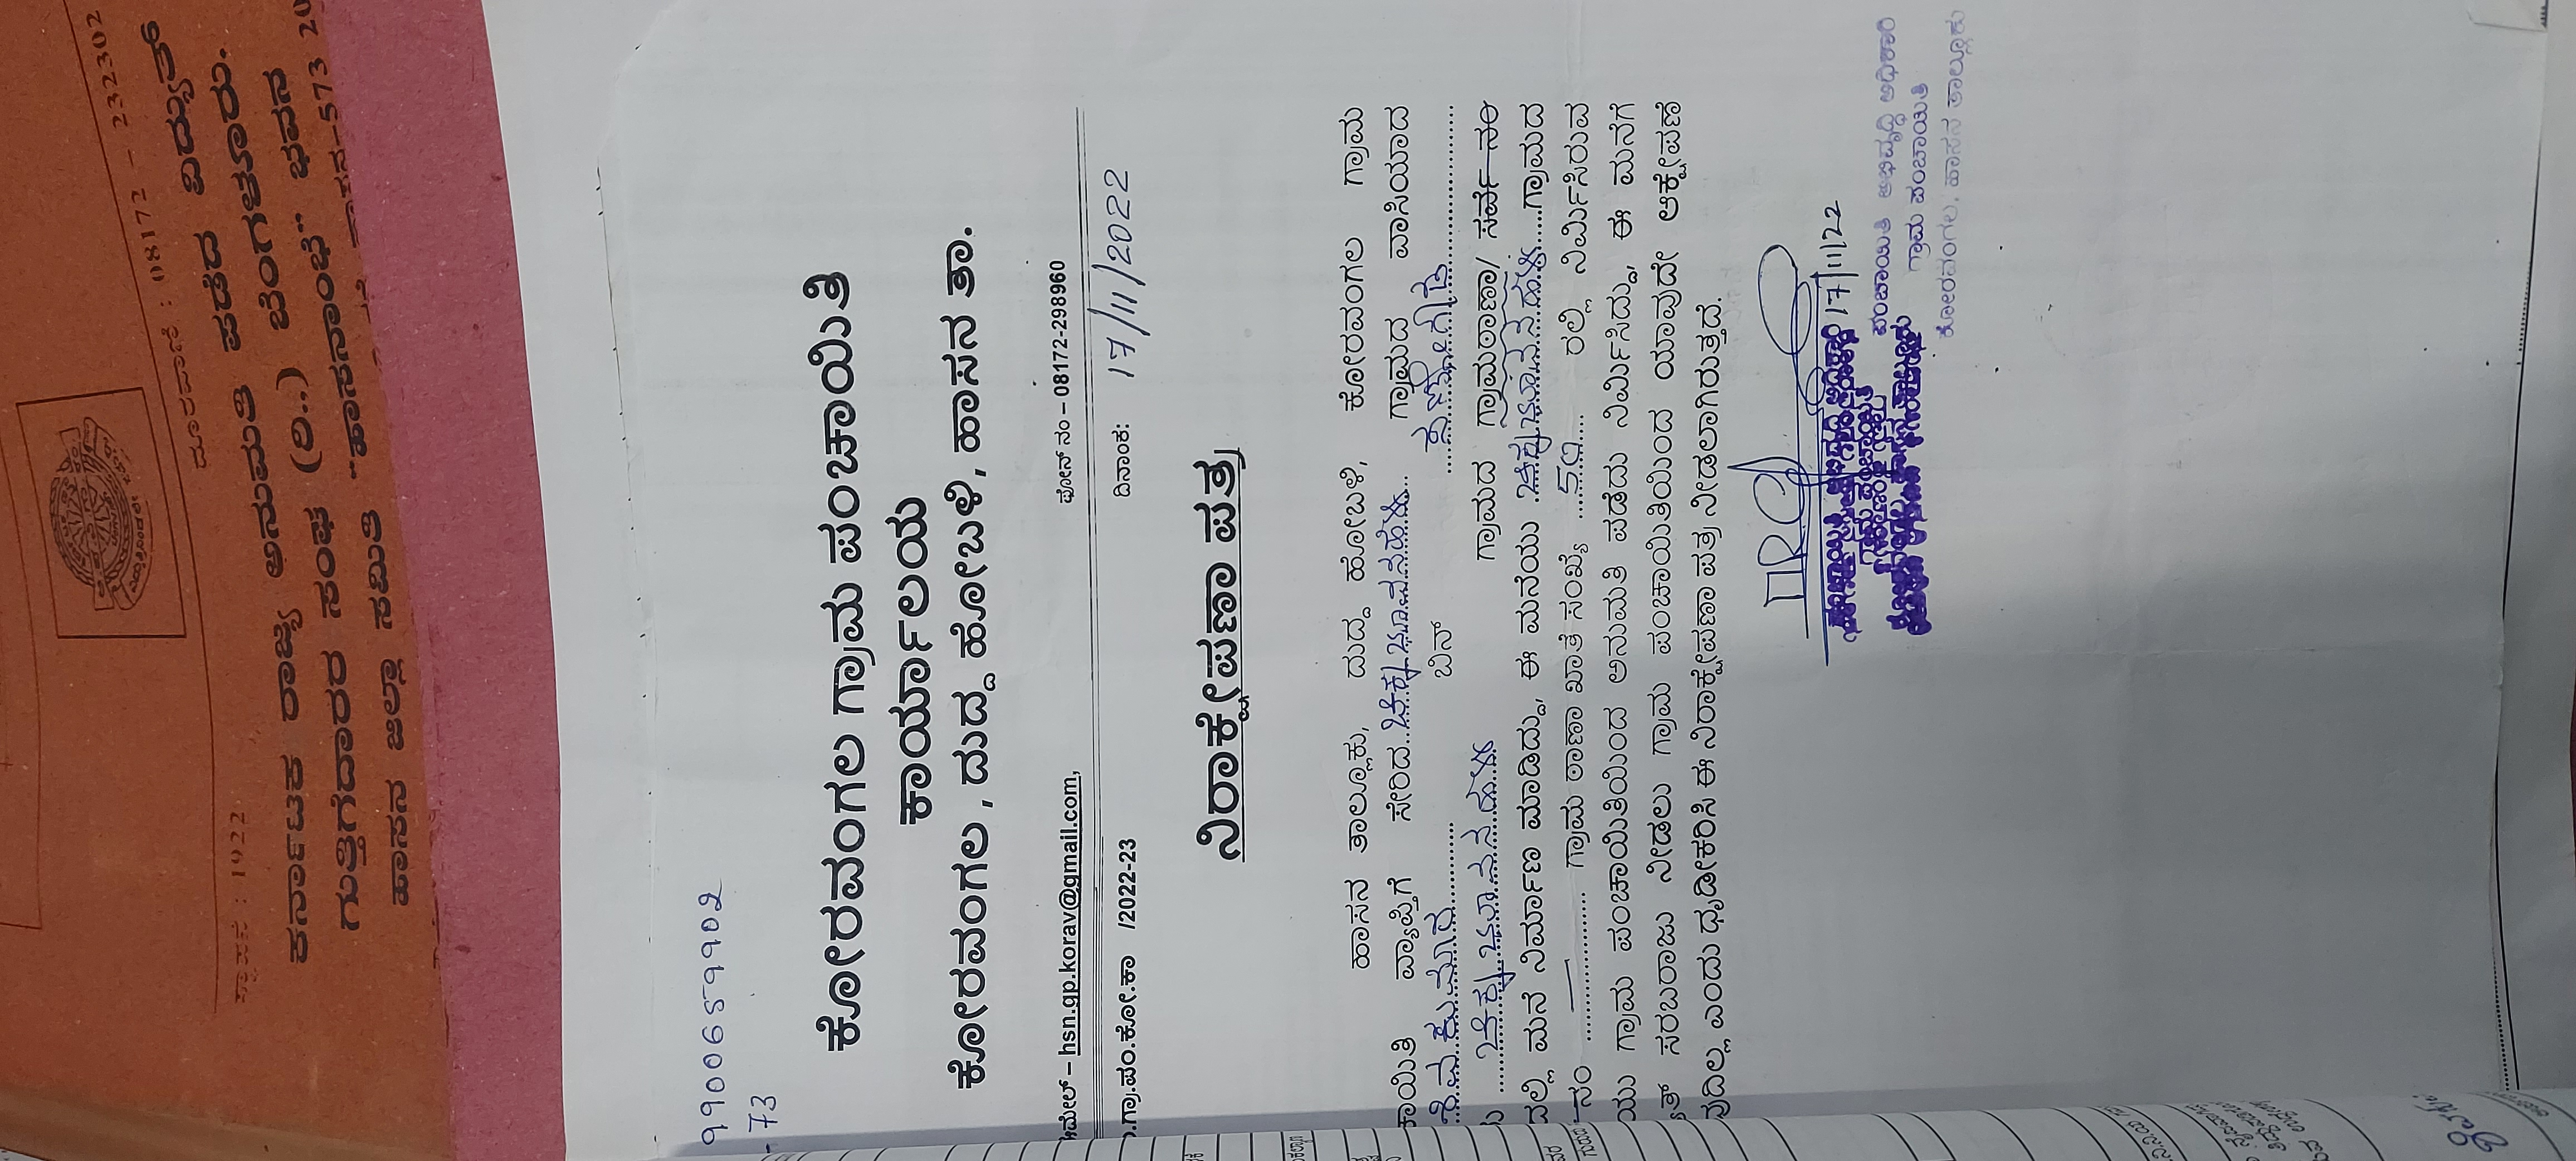 ದೂರವಾಣಿ : 08172 - 232302
ಸ್ಥಾಪನೆ : 1922
ಕರ್ನಾಟಕ ರಾಜ್ಯ ಅನುಮತಿ ಪಡೆದ ವಿದ್ಯುತ್
ಗುತ್ತಿಗೆದಾರರ ಸಂಘ (ರಿ..) ಬೆಂಗಳೂರು.
ಹಾಸನ ಜಿಲ್ಲಾ ಸಮಿತಿ "ಹಾಸನಾಂಭೆ" ಭವನ
9900659902
73
ಕೋರವಂಗಲ ಗ್ರಾಮ ಪಂಚಾಯಿತಿ
ಕಾರ್ಯಾಲಯ
ಕೋರವಂಗಲ, ದುದ್ದ ಹೋಬಳಿ, ಹಾಸನ ತಾ.
ಇಮೇಲ್ – hsn.gp.korav@gmail.com, ಫೋನ್ ನಂ – 08172-298960
.ಗ್ರಾ.ಪಂ.ಕೋ.ಕಾ /2022-23 ದಿನಾಂಕ: 17/11/2022
ನಿರಾಕ್ಷೇಪಣಾ ಪತ್ರ
ಹಾಸನ ತಾಲ್ಲೂಕು, ದುದ್ದ ಹೋಬಳಿ, ಕೋರವಂಗಲ ಗ್ರಾಮ
ಚಾಯಿತಿ ವ್ಯಾಪ್ತಿಗೆ ಸೇರಿದ ಚಿಕ್ಕಭೂವನಹಳ್ಳಿ ಗ್ರಾಮದ ವಾಸಿಯಾದ
ಶಿವಕುಮಾರ ಬಿನ್
ಚಿಕ್ಕಭೂವನಹಳ್ಳಿ ಗ್ರಾಮದ ಗ್ರಾಮಠಾಣಾ/ ಸರ್ವೆ ನಂ
ದಲ್ಲಿ ಮನೆ ನಿರ್ಮಾಣ ಮಾಡಿದ್ದು, ಈ ಮನೆಯು ಚಿಕ್ಕಭೂವನಹಳ್ಳಿ ಗ್ರಾಮದ
ನಂ — ಗ್ರಾಮ ಠಾಣಾ ಖಾತೆ ಸಂಖ್ಯೆ 50 ರಲ್ಲಿ ನಿರ್ಮಿಸಿರುವ
ಯು ಗ್ರಾಮ ಪಂಚಾಯಿತಿಯಿಂದ ಅನುಮತಿ ಪಡೆದು ನಿರ್ಮಿಸಿದ್ದು, ಈ ಮನೆಗೆ
ಸರಬರಾಜು ನೀಡಲು ಗ್ರಾಮ ಪಂಚಾಯಿತಿಯಿಂದ ಯಾವುದೇ ಆಕ್ಷೇಪಣೆ
ವುದಿಲ್ಲ ಎಂದು ಧೃಡೀಕರಿಸಿ ಈ ನಿರಾಕ್ಷೇಪಣಾ ಪತ್ರ ನೀಡಲಾಗಿರುತ್ತದೆ.
17/11/22
ಪಂಚಾಯಿತಿ ಅಭಿವೃದ್ಧಿ ಅಧಿಕಾರಿ
ಗ್ರಾಮ ಪಂಚಾಯಿತಿ
ಕೋರವಂಗಲ, ಹಾಸನ ತಾಲ್ಲೂಕು